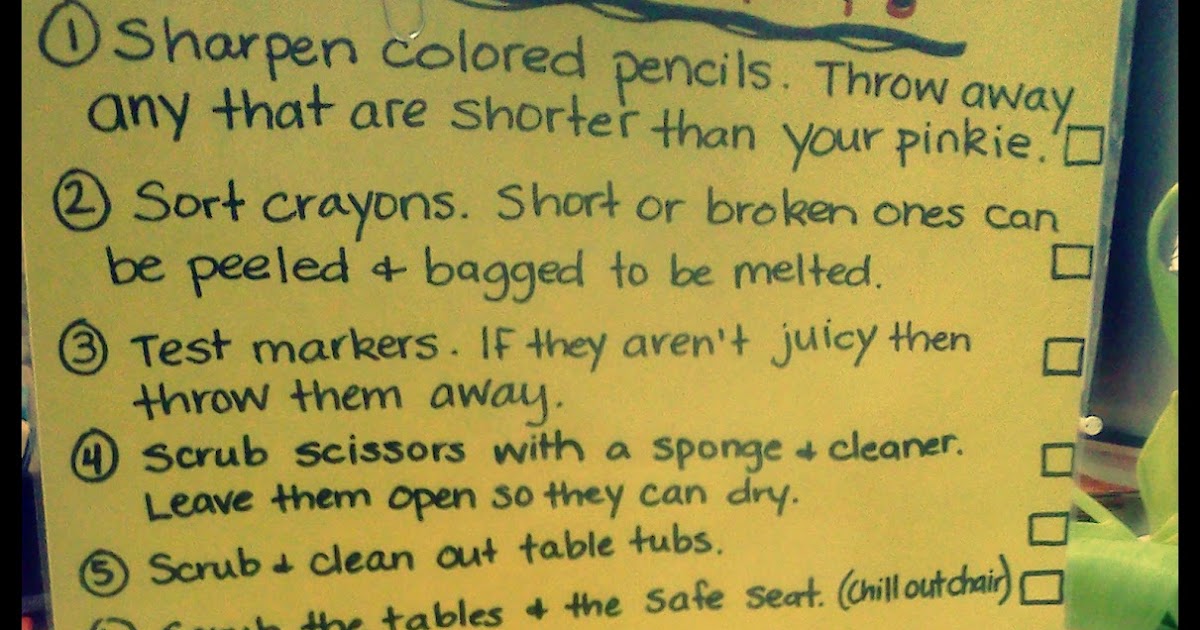 ① Sharpen colored pencils. Throw away
any that are shorter than your pinkie.
② Sort crayons. Short or broken ones can
be peeled & bagged to be melted.
③ Test markers. If they aren't juicy then
throw them away.
④ Scrub scissors with a sponge & cleaner.
Leave them open so they can dry.
⑤ Scrub & clean out table tubs.
Scrub the tables & the safe seat. (Chill out chair)